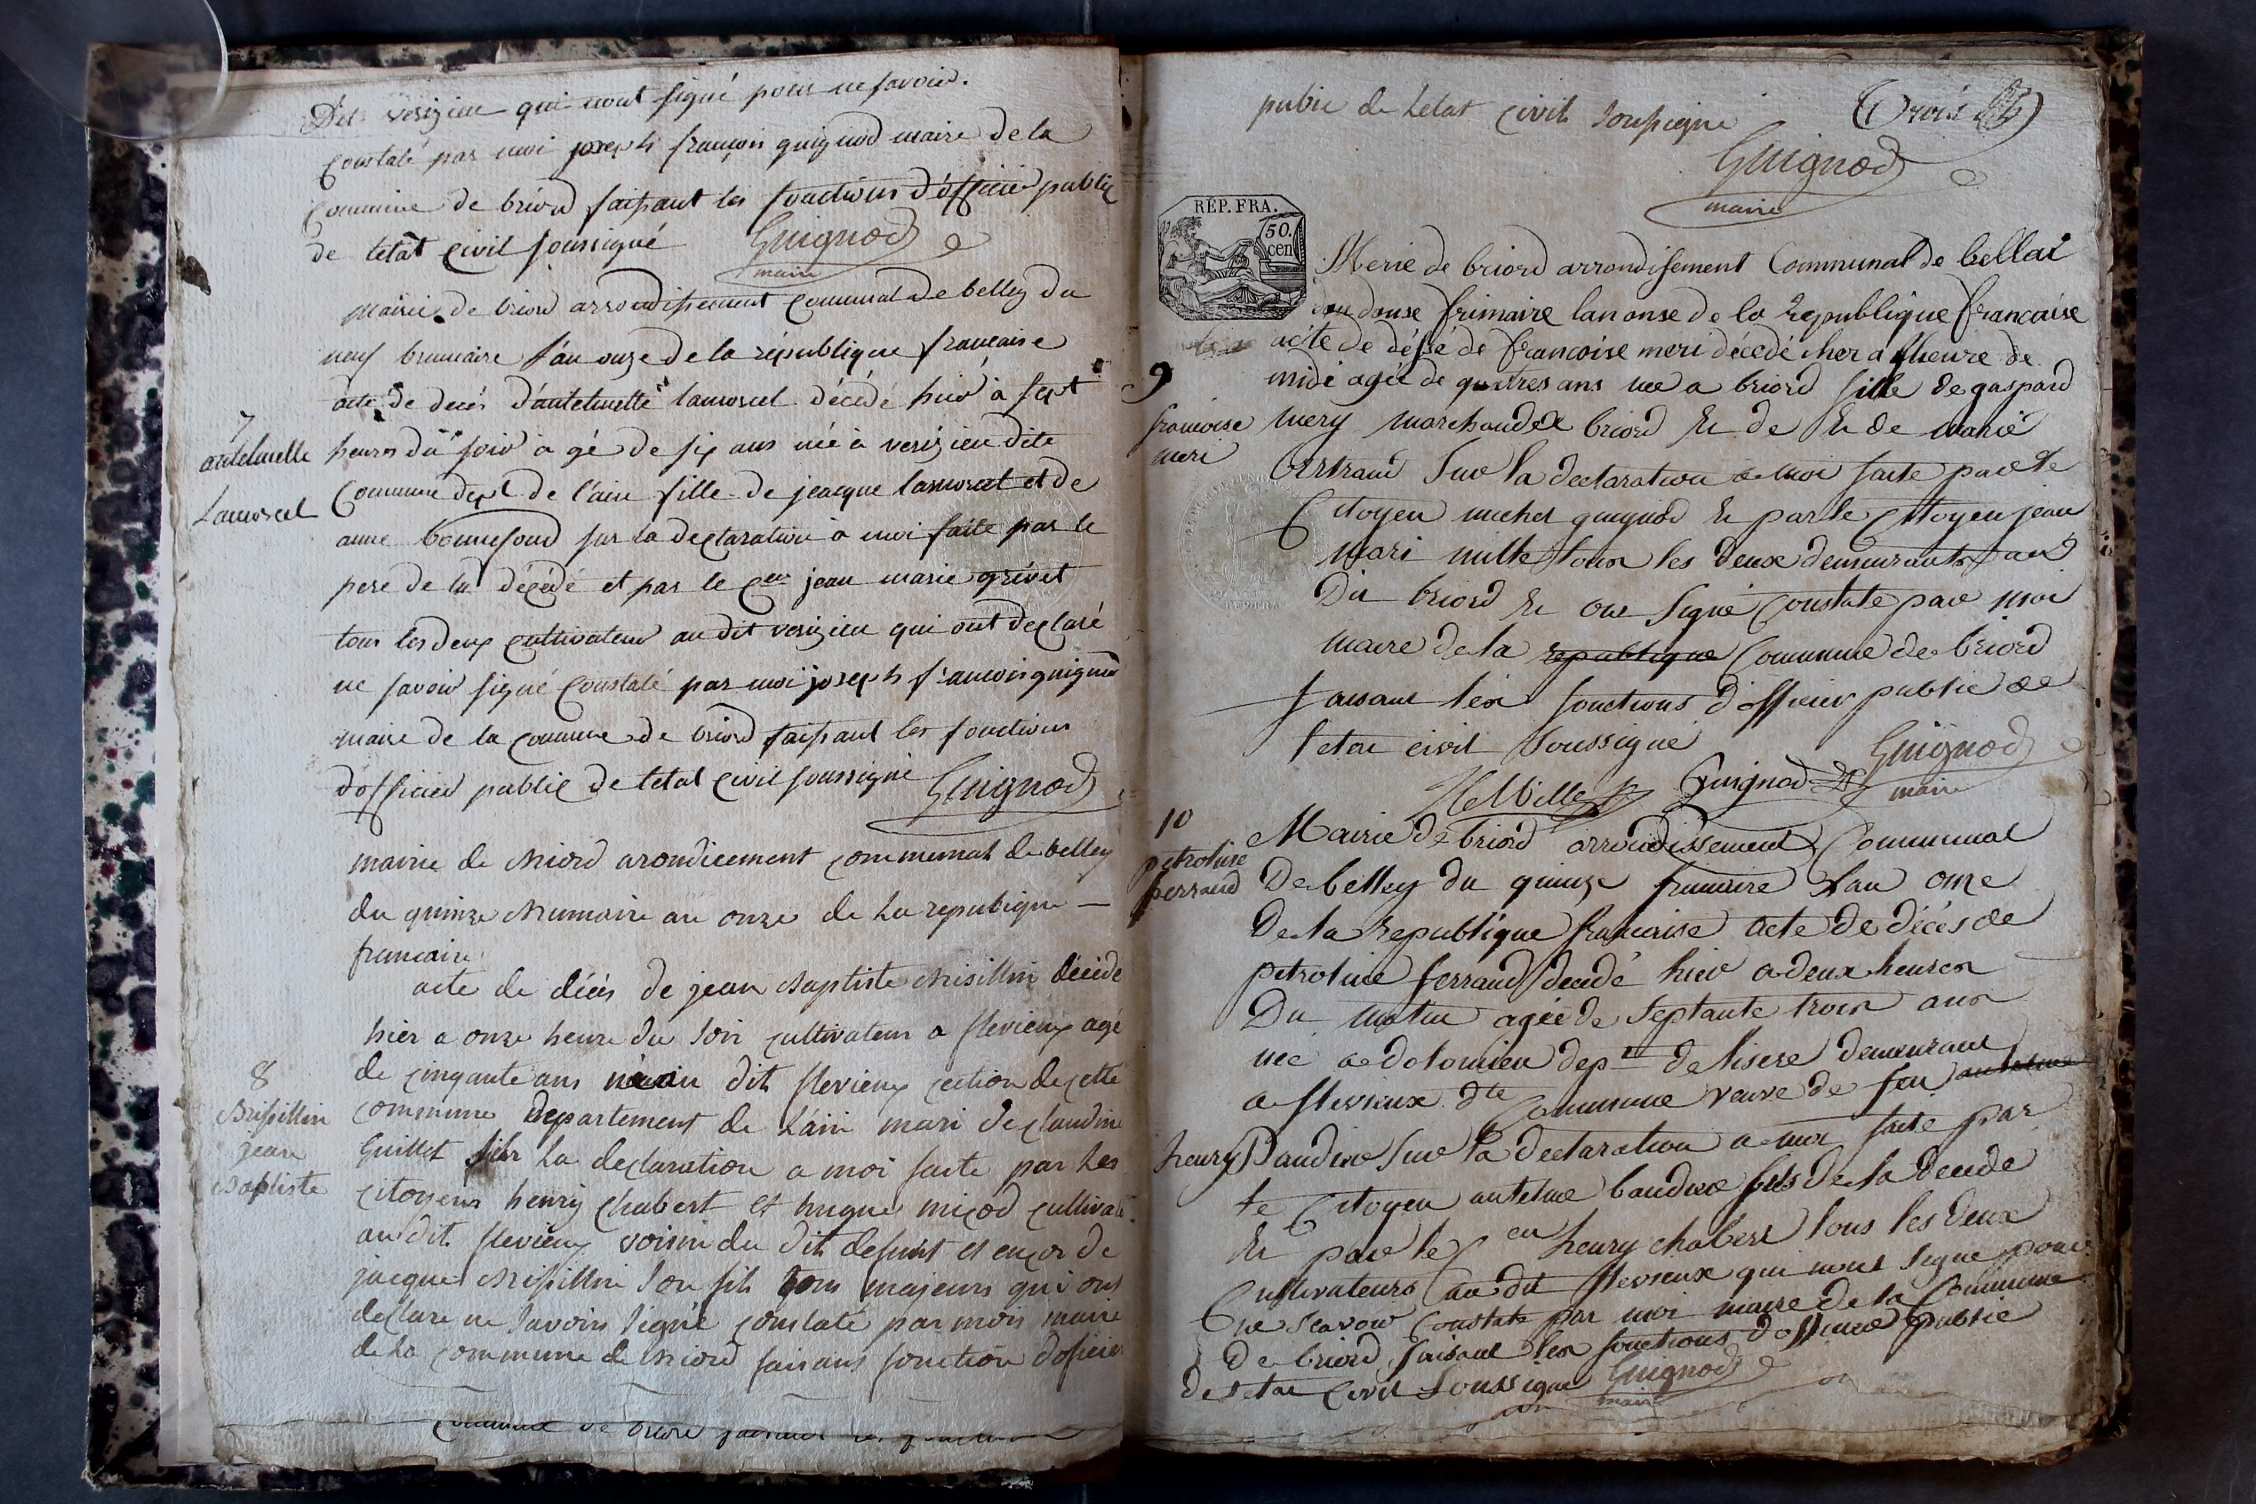 Dit verizieu qui nont signé pour ne savoir.
Constaté par moi joseph françois guignod maire de la
Commune de briord faisant les fonctions d'officier public
de letat civil soussigné Guignod
maire
Mairie de briord arrondissement communal de belley du
neuf brumaire l'an onze de la république francaise
acte de decés d'antelmette lamorcel décédé hier à sept
7
antelmette
Lamorcel
heures du soir agé de six ans née à verizieu dite
Commune dept de l'ain fille de jeacque lamorcel et de
anne bonnefond sur la declaration à moi faite par le
pere de la décédé et par le Cen jean marie grivet
tous les deux cultivateur au dit verizieu qui ont declaré
ne savoir signé Constaté par moi joseph francois guignod
maire de la commune de briord faisant les fonctions
d'officier public de letat civil soussigné Guignod
mairie de briord arondicement commumal de belley
du quinze brumaire an onze de la repubique —
francaise
acte de décés de jean baptiste brisillin décéde
hier a onze heure du soir cultivateur a flevieux agé
8
Brisillin
jean
baptiste
de cinqante ans né au dit flevieux cection de cette
commune departement de L'ain mari de claudine
Guillet sur la declaration a moi faite par les
citoyens henry chabert et hugue micod cultivate
au dit flevieux voisin du dit defunt et encor de
jacque brisillin son fils tous majeurs qui ont
declare ne savoir signé constaté par mois maire
de la commune de briord faisans fonction doficier
commune de briord faisant les fonctions
pubic de Letat civil sousigne (Trois)
Guignod
maire
REP. FRA.
50.
cen
Merie de briord arrondisement Communal de bellai
du douse frimaire lan onse de la Republique francaise
acte de désé de francoise meri décedé hier a lheure de
9
francoise
meri
midi agée de quatres ans née a briord fille de gaspard
mery marchand a briord et de et de marie
Artraud Sur la declaration a moi faite par le
Citoyen michel guignod et par le Citoyen jean
mari millet tous les deux demeurants au
Dit briord et ont signé Constate par moi
maire de la republique Commune de briord
faisant les fonctions d'officier public de
letat civil soussigné
JMMillet Guignod Guignod
maire
10
petroline
ferraud
Mairie de briord arrondissement Communal
De belley du quinze frimaire l'an onze
De la Republique francaise acte de décés de
petroline ferraud decedé hier a deux heures
Du matin agée de septante trois ans
née a dolomieu dept de lisere demeurant
a flevieux dte Commune veuve de feu antelme
henry Baudin sur la declaration a moi faite par
le Citoyen antelme baudin fils de la decede
et par le Cen henry chabert tous les deux
Cultivateurs au dit flevieux qui nont signe pour
ne scavoir Constate par moi maire de la Commune
De briord faisant les fonctions d'officier public
de letat civil Soussigne Guignod
maire